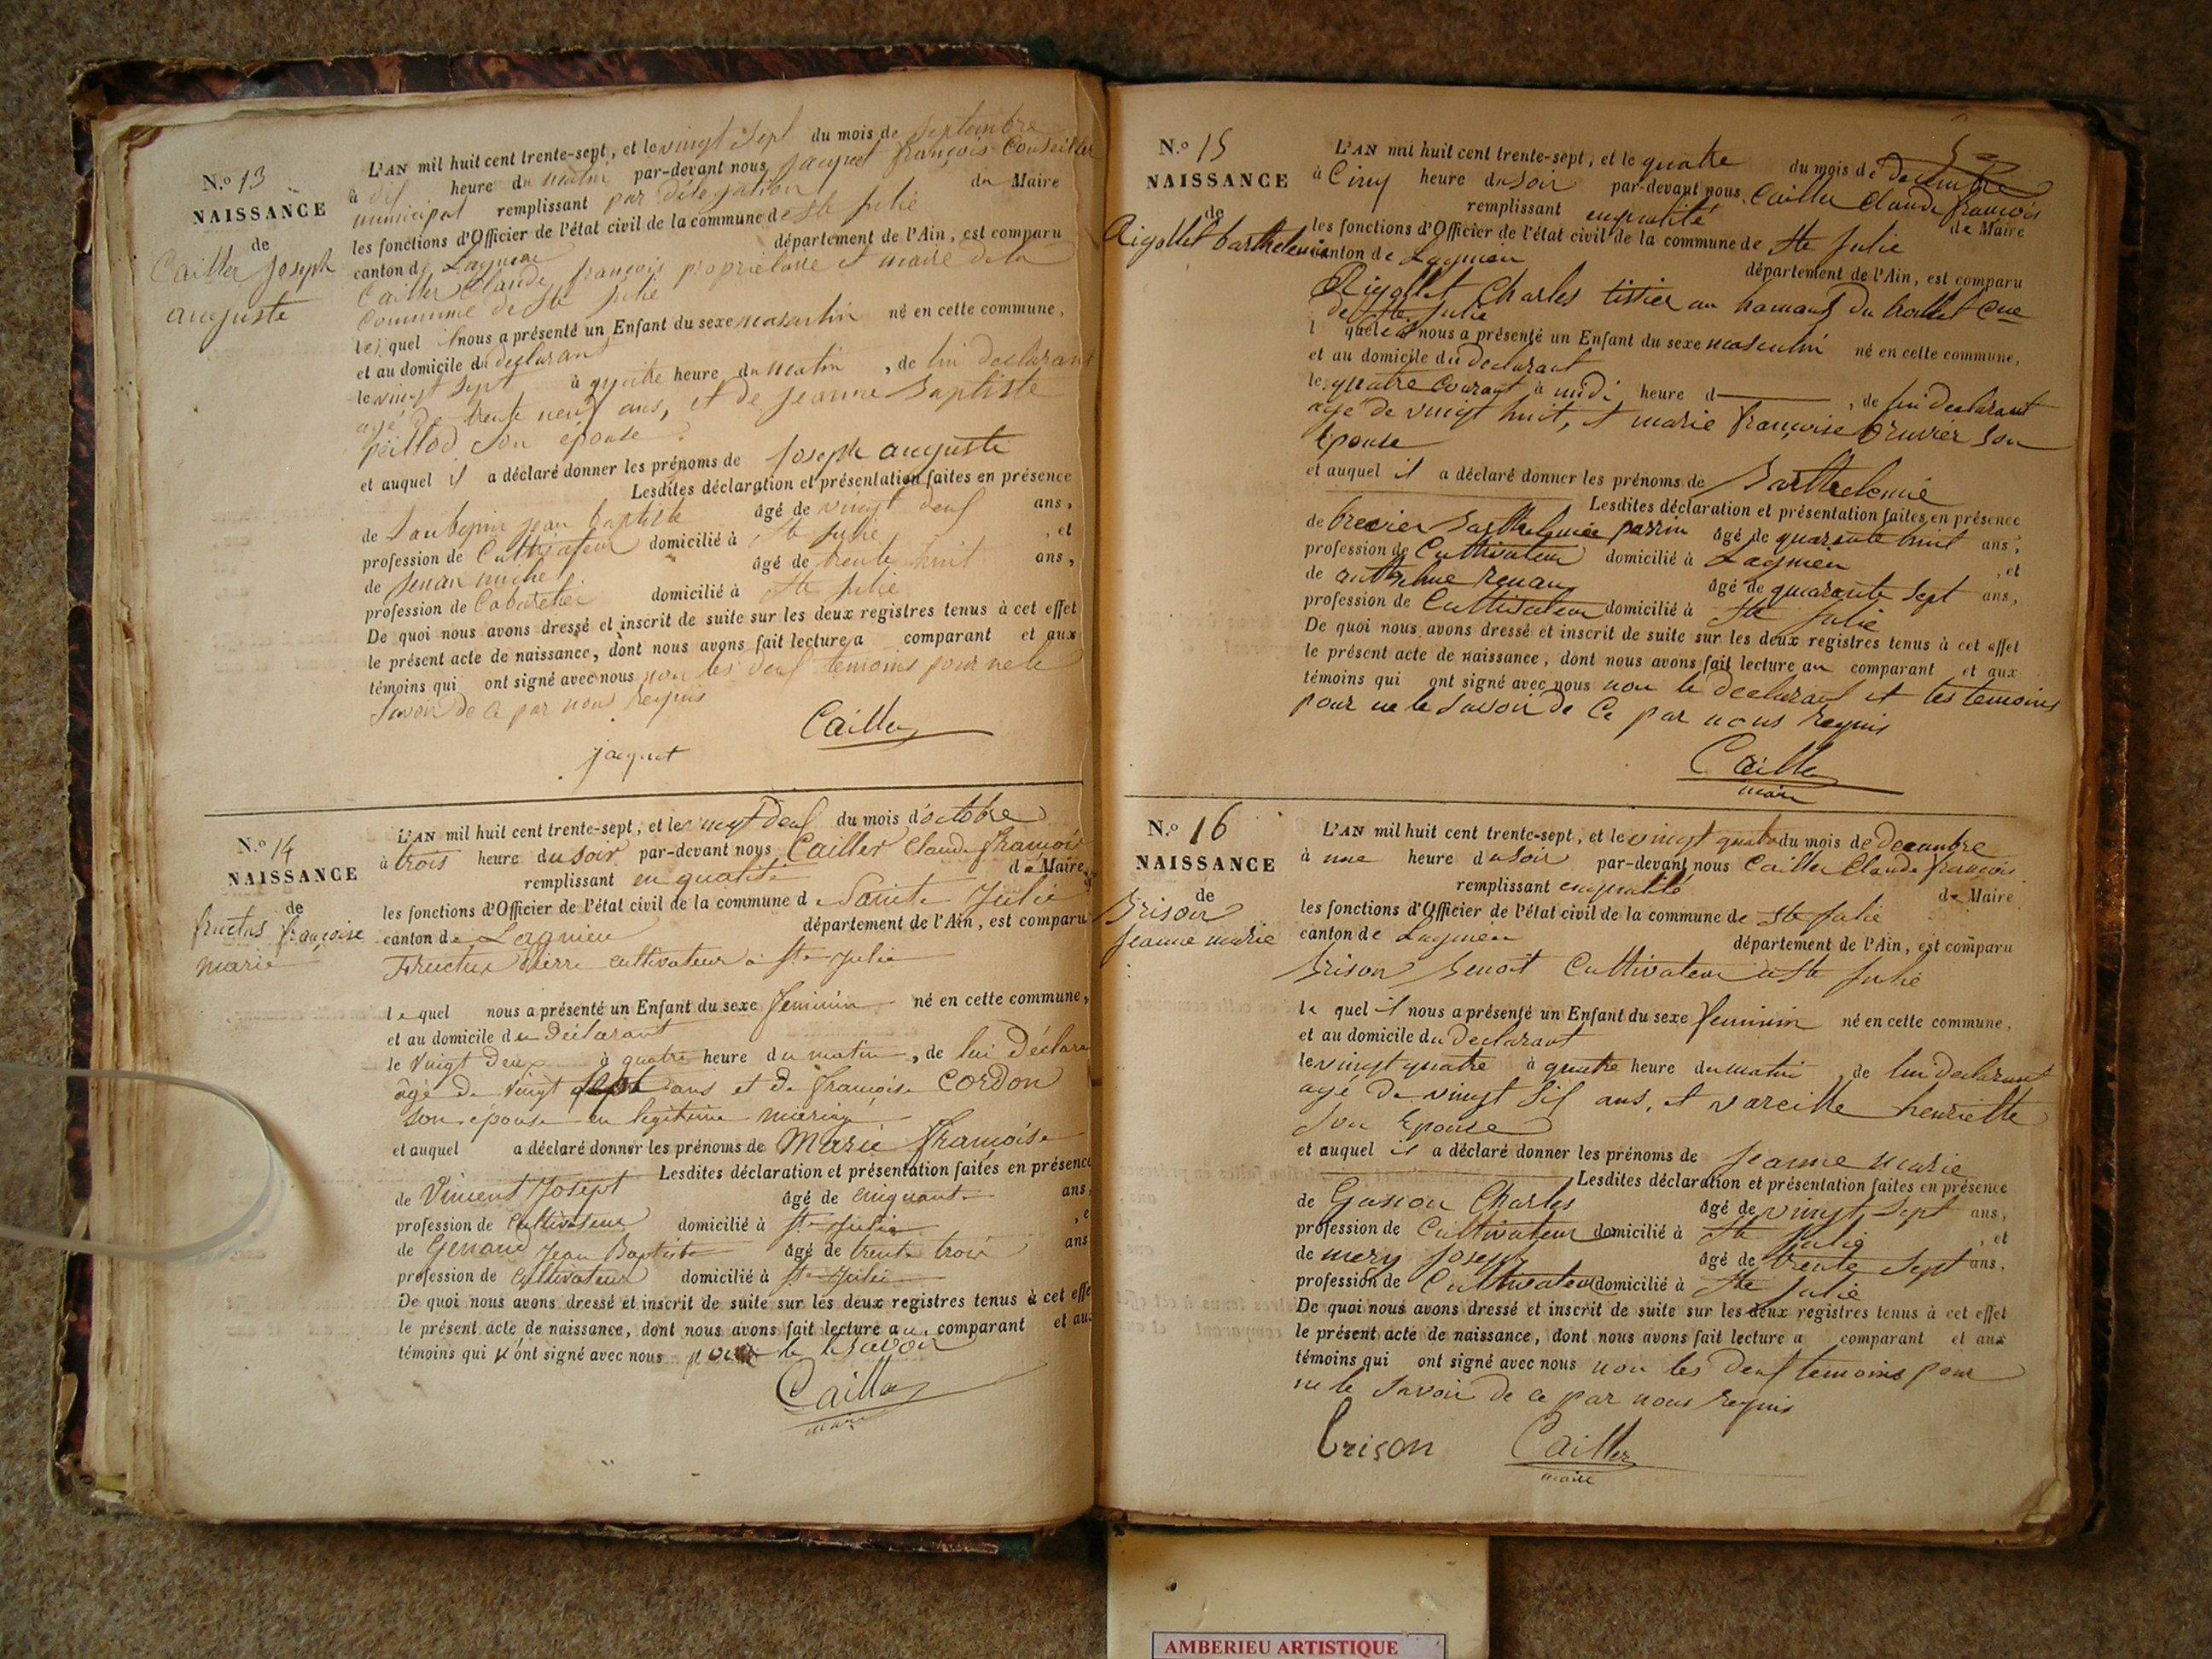 N.º 13
NAISSANCE
de
Cailler Joseph
auguste
L'AN mil huit cent trente-sept, et le vingt sept du mois de septembre
à dix heure du matin par-devant nous jacquet françois Conseiller
municipal remplissant par délégation du Maire
les fonctions d'Officier de l'état civil de la commune de Ste julie
canton de Lagnieu département de l'Ain, est comparu
Cailler Claude françois propriétaire et maire de la
Commune de Ste julie
lequel il nous a présenté un Enfant du sexe masculin né en cette commune,
et au domicile du declarant
le vingt sept à quatre heure du matin, de lui declarant
agé de trente neuf ans, et de jeanne Baptiste
son épouse
et auquel il a déclaré donner les prénoms de joseph auguste
Lesdites déclaration et présentation faites en présence
de jean baptiste âgé de vingt deux ans,
profession de Cultivateur domicilié à Ste julie, et
de michel âgé de trente huit ans,
profession de Cabaretier domicilié à Ste julie
De quoi nous avons dressé et inscrit de suite sur les deux registres tenus à cet effet
le présent acte de naissance, dont nous avons fait lecture a comparant et aux
témoins qui ont signé avec nous non les deux temoins pour ne le
Savoir de ce par nous requis
Cailler
jacquet
N.º 14
NAISSANCE
de
fructus françoise
marie
L'AN mil huit cent trente-sept, et le vingt deux du mois d'octobre
à trois heure du soir par-devant nous Cailler Claude françois
remplissant en qualité de Maire
les fonctions d'Officier de l'état civil de la commune de Sainte Julie
canton de Lagnieu département de l'Ain, est comparu
Fructus pierre cultivateur à Ste julie
lequel nous a présenté un Enfant du sexe feminin né en cette commune,
et au domicile du Déclarant
le vingt Deux à quatre heure du matin, de lui Déclara
âgé de vingt sept ans et de françoise CORDON
son épouse en legitime mariage
et auquel a déclaré donner les prénoms de Marie françoise
Lesdites déclaration et présentation faites en présence
de Vincent Joseph âgé de cinquante ans,
profession de Cultivateur domicilié à Ste julie, e
de Genaud Jean Baptiste âgé de trente trois ans
profession de Cultivateur domicilié à Ste julie
De quoi nous avons dressé et inscrit de suite sur les deux registres tenus à cet effe
le présent acte de naissance, dont nous avons fait lecture au comparant et aux
témoins qui n ont signé avec nous pour ne le savoir
Cailler
maire
N.º 15
NAISSANCE
de
Rigollet barthelemie
L'AN mil huit cent trente-sept, et le quatre du mois de decembre
à Cinq heure du soir par-devant nous Cailler Claude françois
remplissant enqualité de Maire
les fonctions d'Officier de l'état civil de la commune de Ste julie
canton de Lagnieu département de l'Ain, est comparu
Rigollet Charles tissier au hamaud du trollet Cne
de Ste julie
l quel il nous a présenté un Enfant du sexe masculin né en cette commune,
et au domicile du declarant
le quatre Courant à midi heure d , de lui declarant
agé de vingt huit, et marie françoise Bruvier son
Epouse
et auquel il a déclaré donner les prénoms de Barthelemie
Lesdites déclaration et présentation faites en présence
de âgé de quarante huit ans,
profession de Cultivateur domicilié à Lagnieu, et
de anthelme renau âgé de quarante sept ans,
profession de Cultivateur domicilié à Ste julie
De quoi nous avons dressé et inscrit de suite sur les deux registres tenus à cet effet
le présent acte de naissance, dont nous avons fait lecture au comparant et aux
témoins qui ont signé avec nous non le declarant et les temoins
pour ne le savoir de Ce par nous requis
Cailler
maire
N.º 16
NAISSANCE
de
Brison
jeanne marie
L'AN mil huit cent trente-sept, et le vingt quatre du mois de decembre
à une heure du soir par-devant nous Cailler Claude françois
remplissant enqualité de Maire
les fonctions d'Officier de l'état civil de la commune de Ste julie
canton de Lagnieu département de l'Ain, est comparu
Brison Benoit Cultivateur a Ste julie
le quel il nous a présenté un Enfant du sexe feminin né en cette commune,
et au domicile du Declarant
le vingt quatre à quatre heure du matin, de lui declarant
agé de vingt six ans, et vareille henriette
son Epouse
et auquel il a déclaré donner les prénoms de jeanne marie
Lesdites déclaration et présentation faites en présence
de Charles âgé de vingt sept ans,
profession de Cultivateur domicilié à Ste julie, et
de mery joseph âgé de trente sept ans,
profession de Cultivateur domicilié à Ste julie
De quoi nous avons dressé et inscrit de suite sur les deux registres tenus à cet effet
le présent acte de naissance, dont nous avons fait lecture a comparant et aux
témoins qui ont signé avec nous non les deux temoins pour
ne le savoir de ce par nous requis
brison Cailler
maire
AMBERIEU ARTISTIQUE